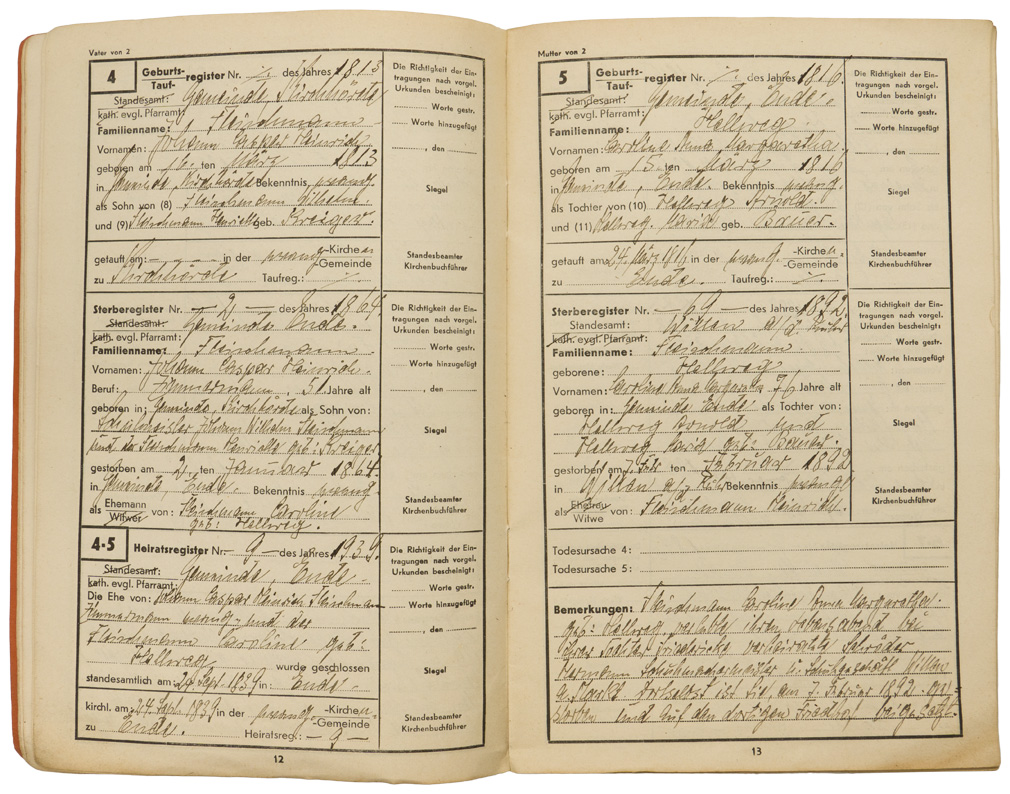 Vater von 2
4
Geburts-
Tauf-
register Nr. ·/. des Jahres 1813
Standesamt: Gemeinde, Kirchhörde
kath. evgl. Pfarramt:
Familienname: Fleischmann
Vornamen: Johann Caspar Heinrich
geboren am 10. ten März 1813
in Gemeinde, Kirchhörde Bekenntnis, evang.
als Sohn von (8) Fleischmann Wilhelm.
und (9) Fleischmann Henriette geb. Kreiger.
getauft am: - - - - in der evang - Kirchen
-Gemeinde
zu Kirchhörde Taufreg.: ·/.
Die Richtigkeit der Ein-
tragungen nach vorgel.
Urkunden bescheinigt:
Worte gestr.
Worte hinzugefügt
, den
Siegel
Standesbeamter
Kirchenbuchführer
Sterberegister Nr. - 2 - des Jahres 1864.
Standesamt: Gemeinde Ende.
kath. evgl. Pfarramt:
Familienname: Fleischmann
Vornamen: Johann Caspar Heinrich.
Beruf: Zimmermann. 51 Jahre alt
geboren in: Gemeinde, Kirchhörde als Sohn von:
Johann Wilhelm Fleischmann
und der Fleischmann Henriette geb: Kreiger
gestorben am 2 ten Januar 1864.
in Gemeinde, Ende. Bekenntnis evang.
als Ehemann
Witwer von: Fleischmann Caroline
geb: Hellweg.
Die Richtigkeit der Ein-
tragungen nach vorgel.
Urkunden bescheinigt:
Worte gestr.
Worte hinzugefügt
, den
Siegel
Standesbeamter
Kirchenbuchführer
4-5
Heiratsregister Nr. - 9 - des Jahres 1939.
Standesamt: Gemeinde, Ende
kath. evgl. Pfarramt:
Die Ehe von: Johann Caspar Heinrich, Fleischmann
Zimmermann evang. und der
Fleischmann Caroline geb:
Hellweg wurde geschlossen
standesamtlich am: 24 Sept. 1839 in: Ende.
kirchl. am: 24. Sept. 1839 in der evang - Kirchen-
-Gemeinde
zu Ende. Heiratsreg.: - 9 -
Die Richtigkeit der Ein-
tragungen nach vorgel.
Urkunden bescheinigt:
Worte gestr.
Worte hinzugefügt
, den
Siegel
Standesbeamter
Kirchenbuchführer
12
Mutter von 2
5
Geburts-
Tauf-
register Nr. ·/. des Jahres 1816.
Standesamt: Gemeinde, Ende.
kath. evgl. Pfarramt:
Familienname: Hellweg.
Vornamen: Caroline Anna Margaretha.
geboren am 15. ten März 1816
in Gemeinde, Ende. Bekenntnis evang.
als Tochter von (10) Hellweg Arnold.
und (11) Hellweg. Maria geb. Bauer.
getauft am 24. März 1816 in der evang. -Kirchen
-Gemeinde
zu Ende. Taufreg.: ·/.
Die Richtigkeit der Ein-
tragungen nach vorgel.
Urkunden bescheinigt:
Worte gestr.
Worte hinzugefügt
, den
Siegel
Standesbeamter
Kirchenbuchführer
Sterberegister Nr. - 69 - des Jahres 1892.
Standesamt: Witten a/d
kath. evgl. Pfarramt:
Familienname: Fleischmann.
geborene: Hellweg
Vornamen: Caroline Anna Margareta 76 Jahre alt
geboren in: Gemeinde Ende als Tochter von:
Hellweg Arnold und
Hellweg Maria geb: Bauer.
gestorben am ten Februar 1892
in Witten a/d Ruhr Bekenntnis evang.
als Ehefrau
Witwe von: Fleischmann Heinrich.
Die Richtigkeit der Ein-
tragungen nach vorgel.
Urkunden bescheinigt:
Worte gestr.
Worte hinzugefügt
, den
Siegel
Standesbeamter
Kirchenbuchführer
Todesursache 4:
Todesursache 5:
Bemerkungen: Fleischmann Caroline Anna Margaretha.
geb: Hellweg verlebte ihren Lebensabend bei
ihrer Tochter Friedericke verheiratete Schröder
Hermann Schuhmachermeister u. Schuhgeschäft Witten
daselbst ist sie am 7. Februar 1892. ges-
torben und auf den dortigen Friedhof beigesetzt.
13